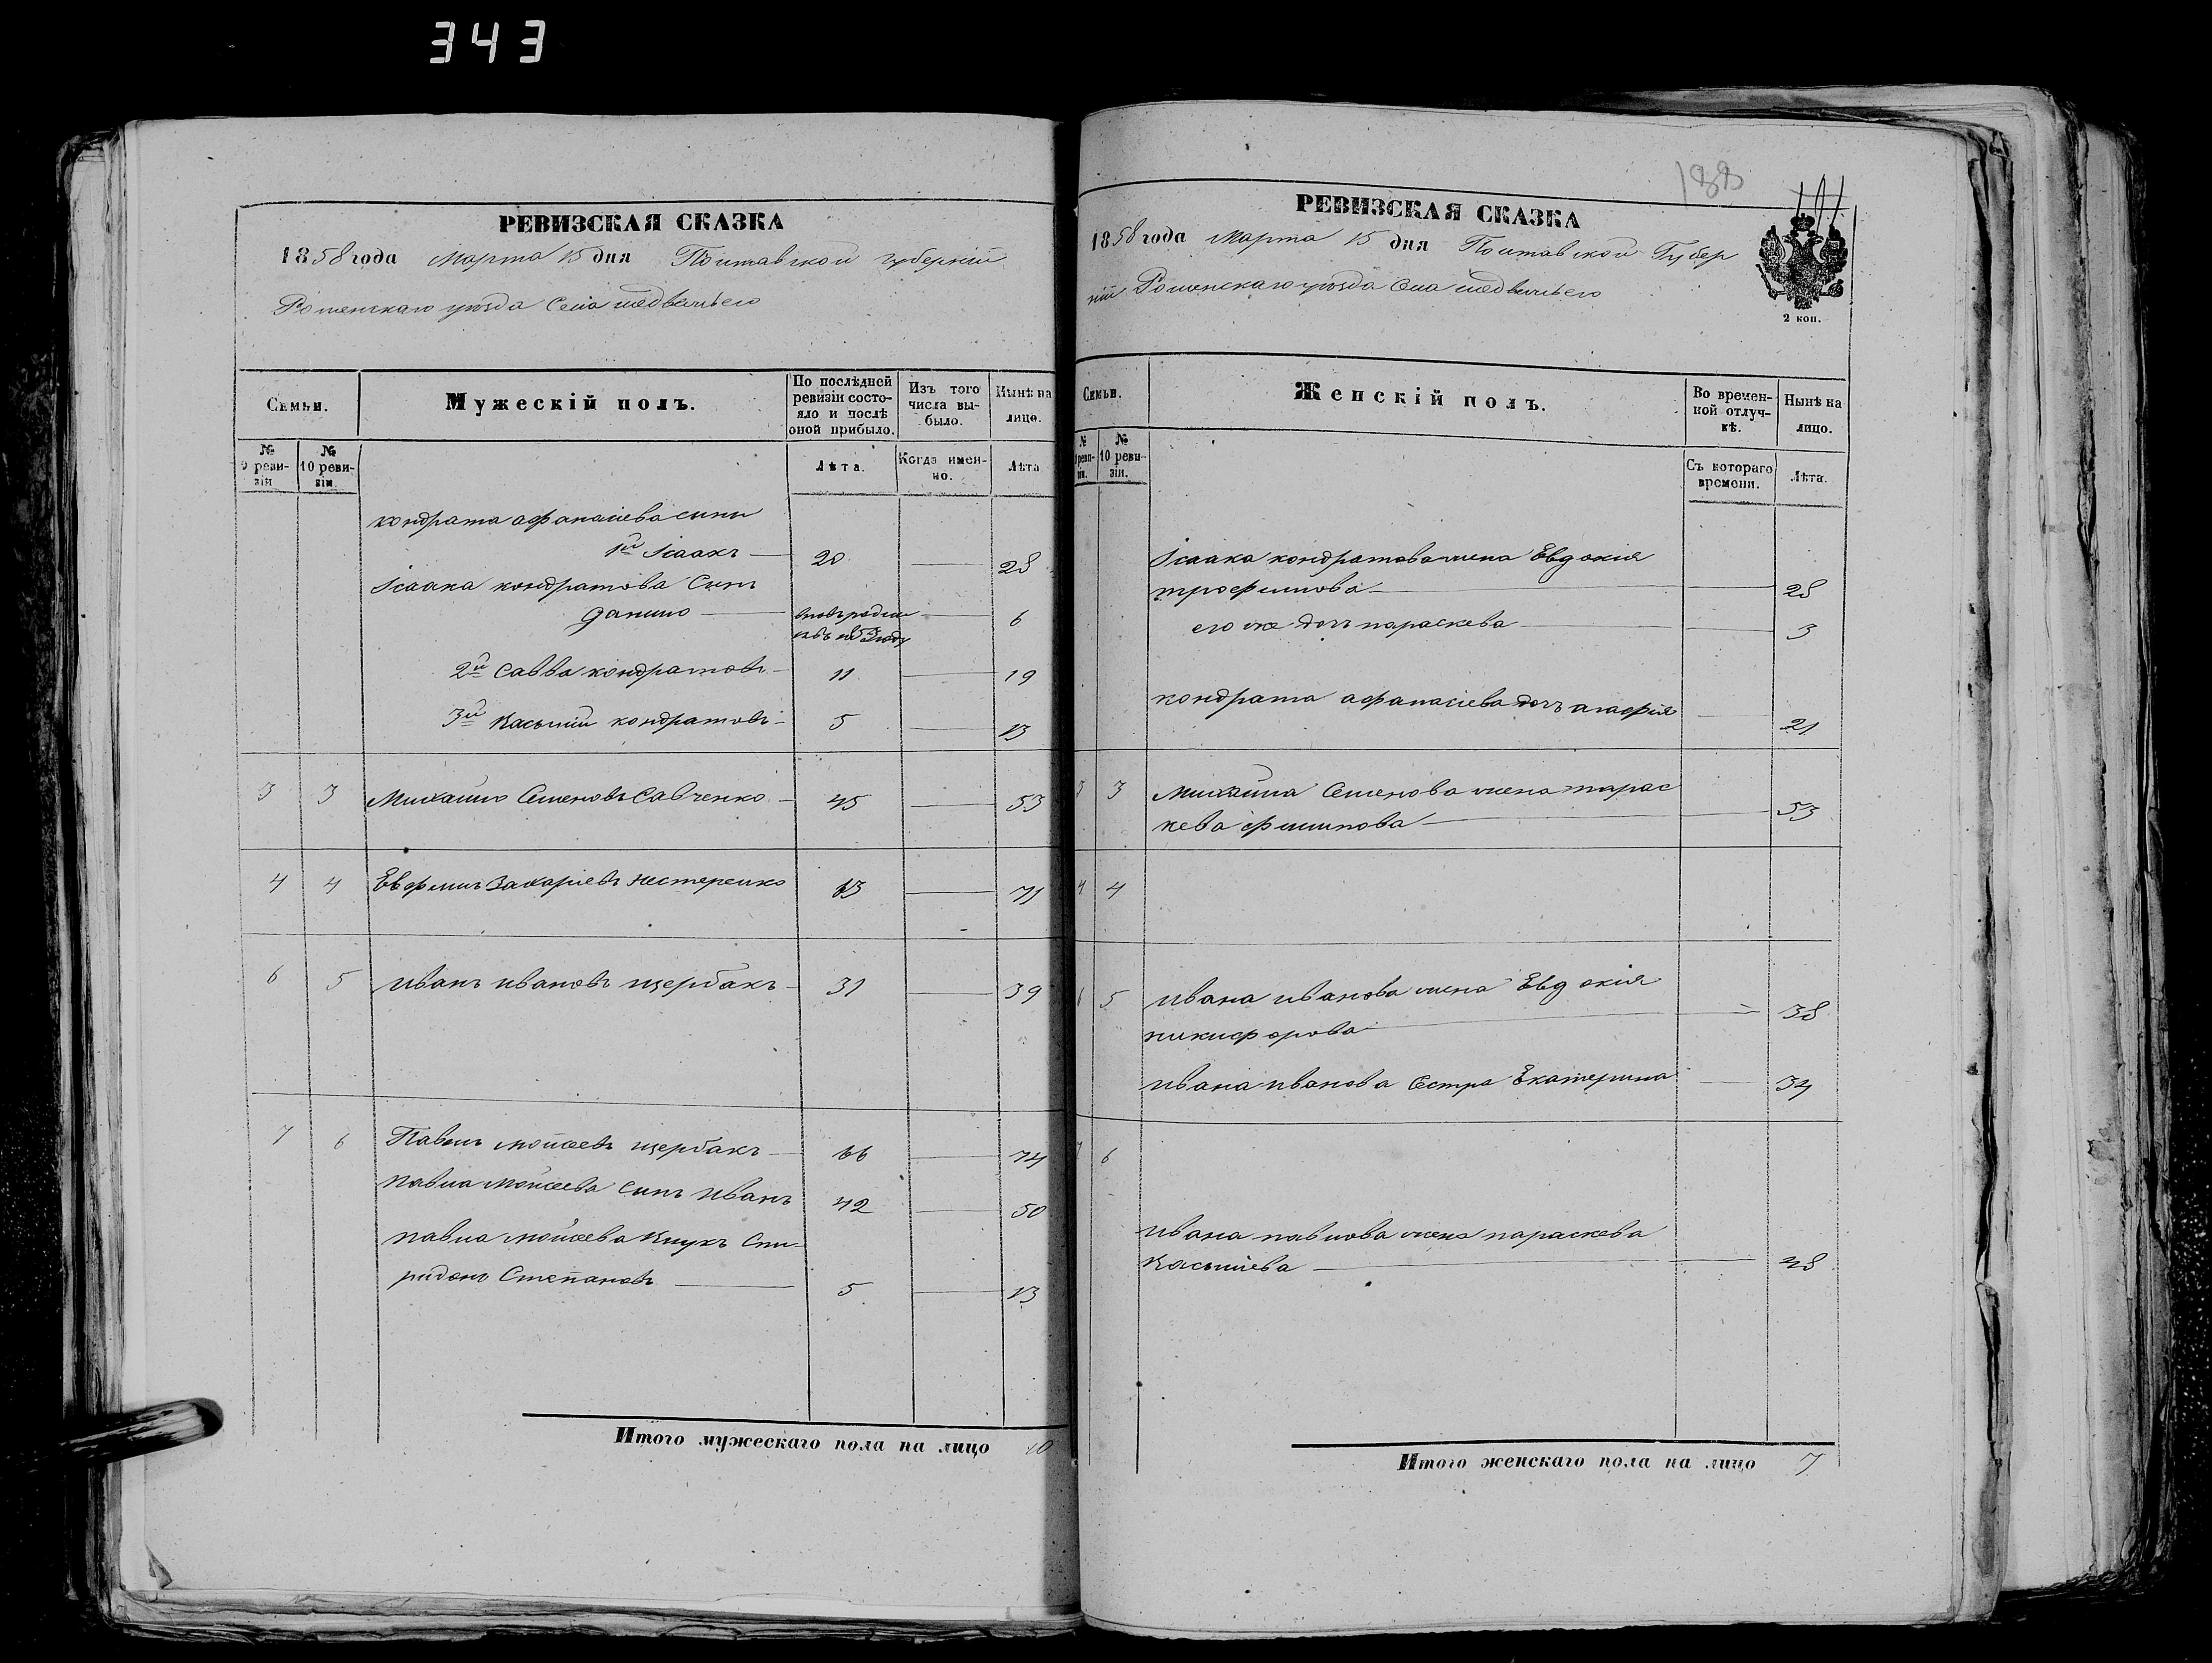 343
РЕВИЗСКАЯ СКАЗКА
1858 года Марта 15 дня Полтавской губерніи
Роменскаго уѣзда Села медвежьего
Семьи.
Мужескій полъ.
По послѣдней ревизіи состояло и послѣ оной прибыло.
Изъ того числа выбыло.
Нынѣ на лицо.
№ 9 ревизіи
№ 10 ревизіи.
Лѣта.
Когда именно.
Лѣта
кондрата афанасіева сыны
1й Ісаакъ 20 28
Ісаака кондратова Сынъ
данило вновь родил 6
2й Савва кондратовъ 11 19
3й Касьянъ кондратовъ 5 13
3 3 Михайло Семеновъ Савченко 45 53
4 4 Евфимъ Захаріевъ нестеренко 63 71
6 5 иванъ ивановъ щербакъ 31 39
7 6 Павелъ мойсеевъ щербакъ 66 74
павла мойсеева сынъ иванъ 42 50
павла мойсеева внукъ Спи
ридонъ Степановъ 5 13
Итого мужескаго пола на лицо 10
188
191
РЕВИЗСКАЯ СКАЗКА
1858 года Марта 15 дня Полтавской Губер
ніи Роменскаго уѣзда Села медвежьего
2 коп.
Семьи.
Женскій полъ.
Во временной отлучкѣ.
Нынѣ на лицо.
№ 9 ревизіи.
№ 10 ревизіи.
Съ котораго времени.
Лѣта.
Ісаака кондратова жена Евдокія
трофимова 28
его же дочь параскева 3
кондрата афанасіева дочь агафія 21
3 3 Михайла Семенова жена парас
кева филипова 53
4 4
6 5 ивана иванова жена Евдокія
никифорова 38
ивана иванова Сестра Екатерина 34
7 6
ивана павлова жена параскева
Касьянова 48
Итого женскаго пола на лицо 7